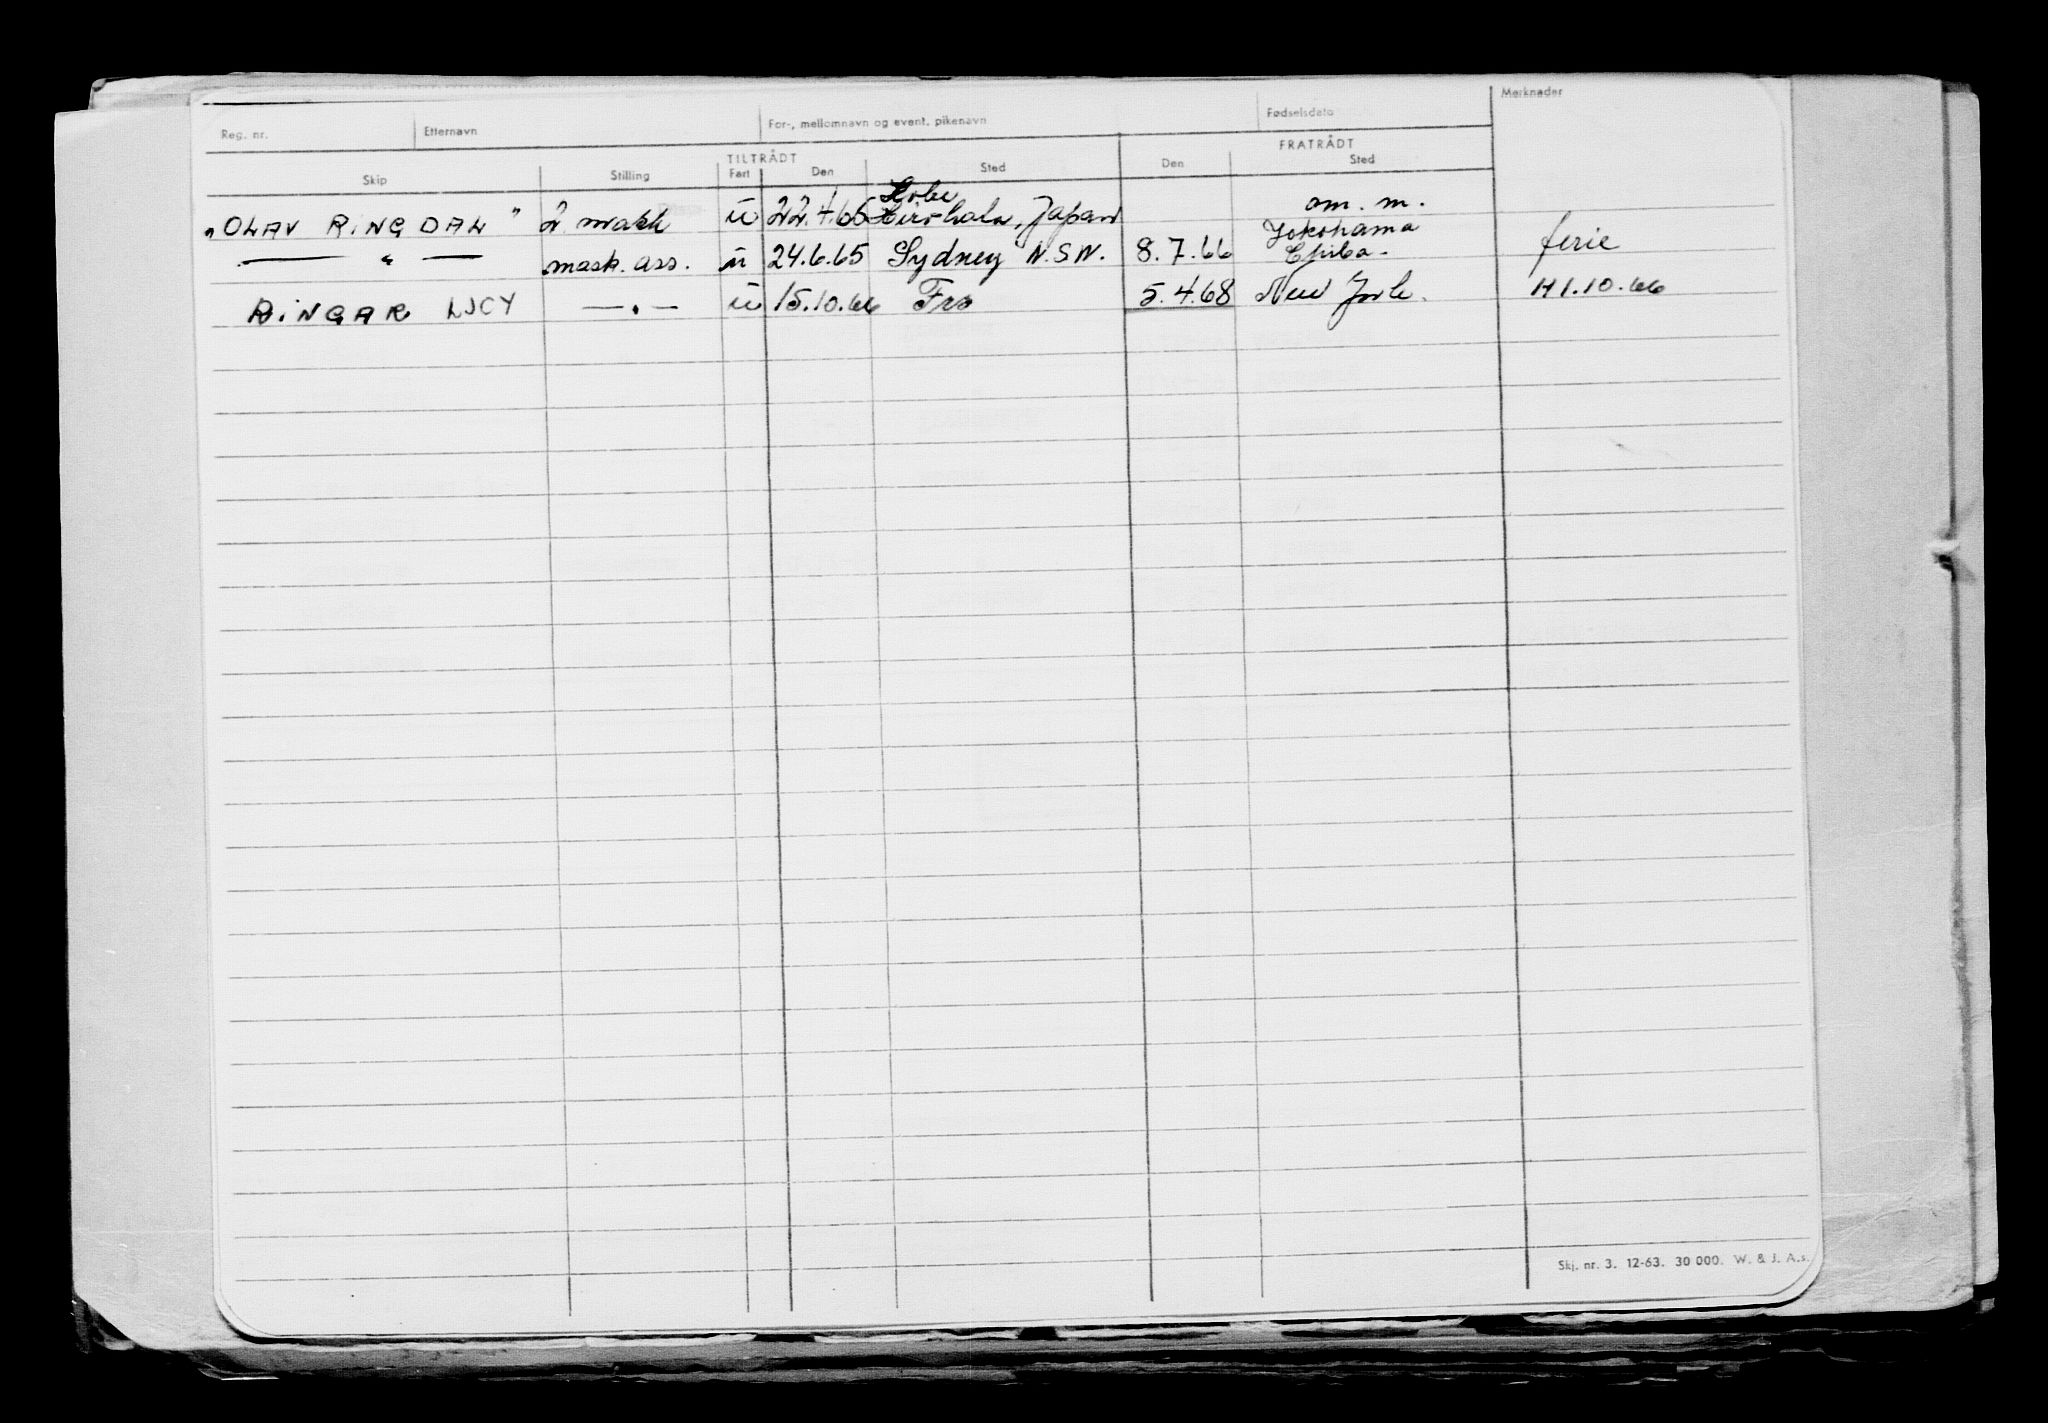 Reg. nr. Etternavn For-, mellomnavn og event. pikenavn Fødselsdato Merknader
TILTRÅDT FRATRÅDT
Skip Stilling Fart Den Sted Den Sted
Kobe
„OLAV RINGDAL" 2 mask u 22.4.65 Japan om. m.
Yokohama
— " — mask. ass. u 24.6.65 Sydney N.S.W. 8.7.66 Chiba. ferie
RINGAR LUCY — . — u 15.10.66 Fra 5.4.68 New York. H1.10.66
Skj. nr. 3. 12-63. 30 000. W. & J. A.s.